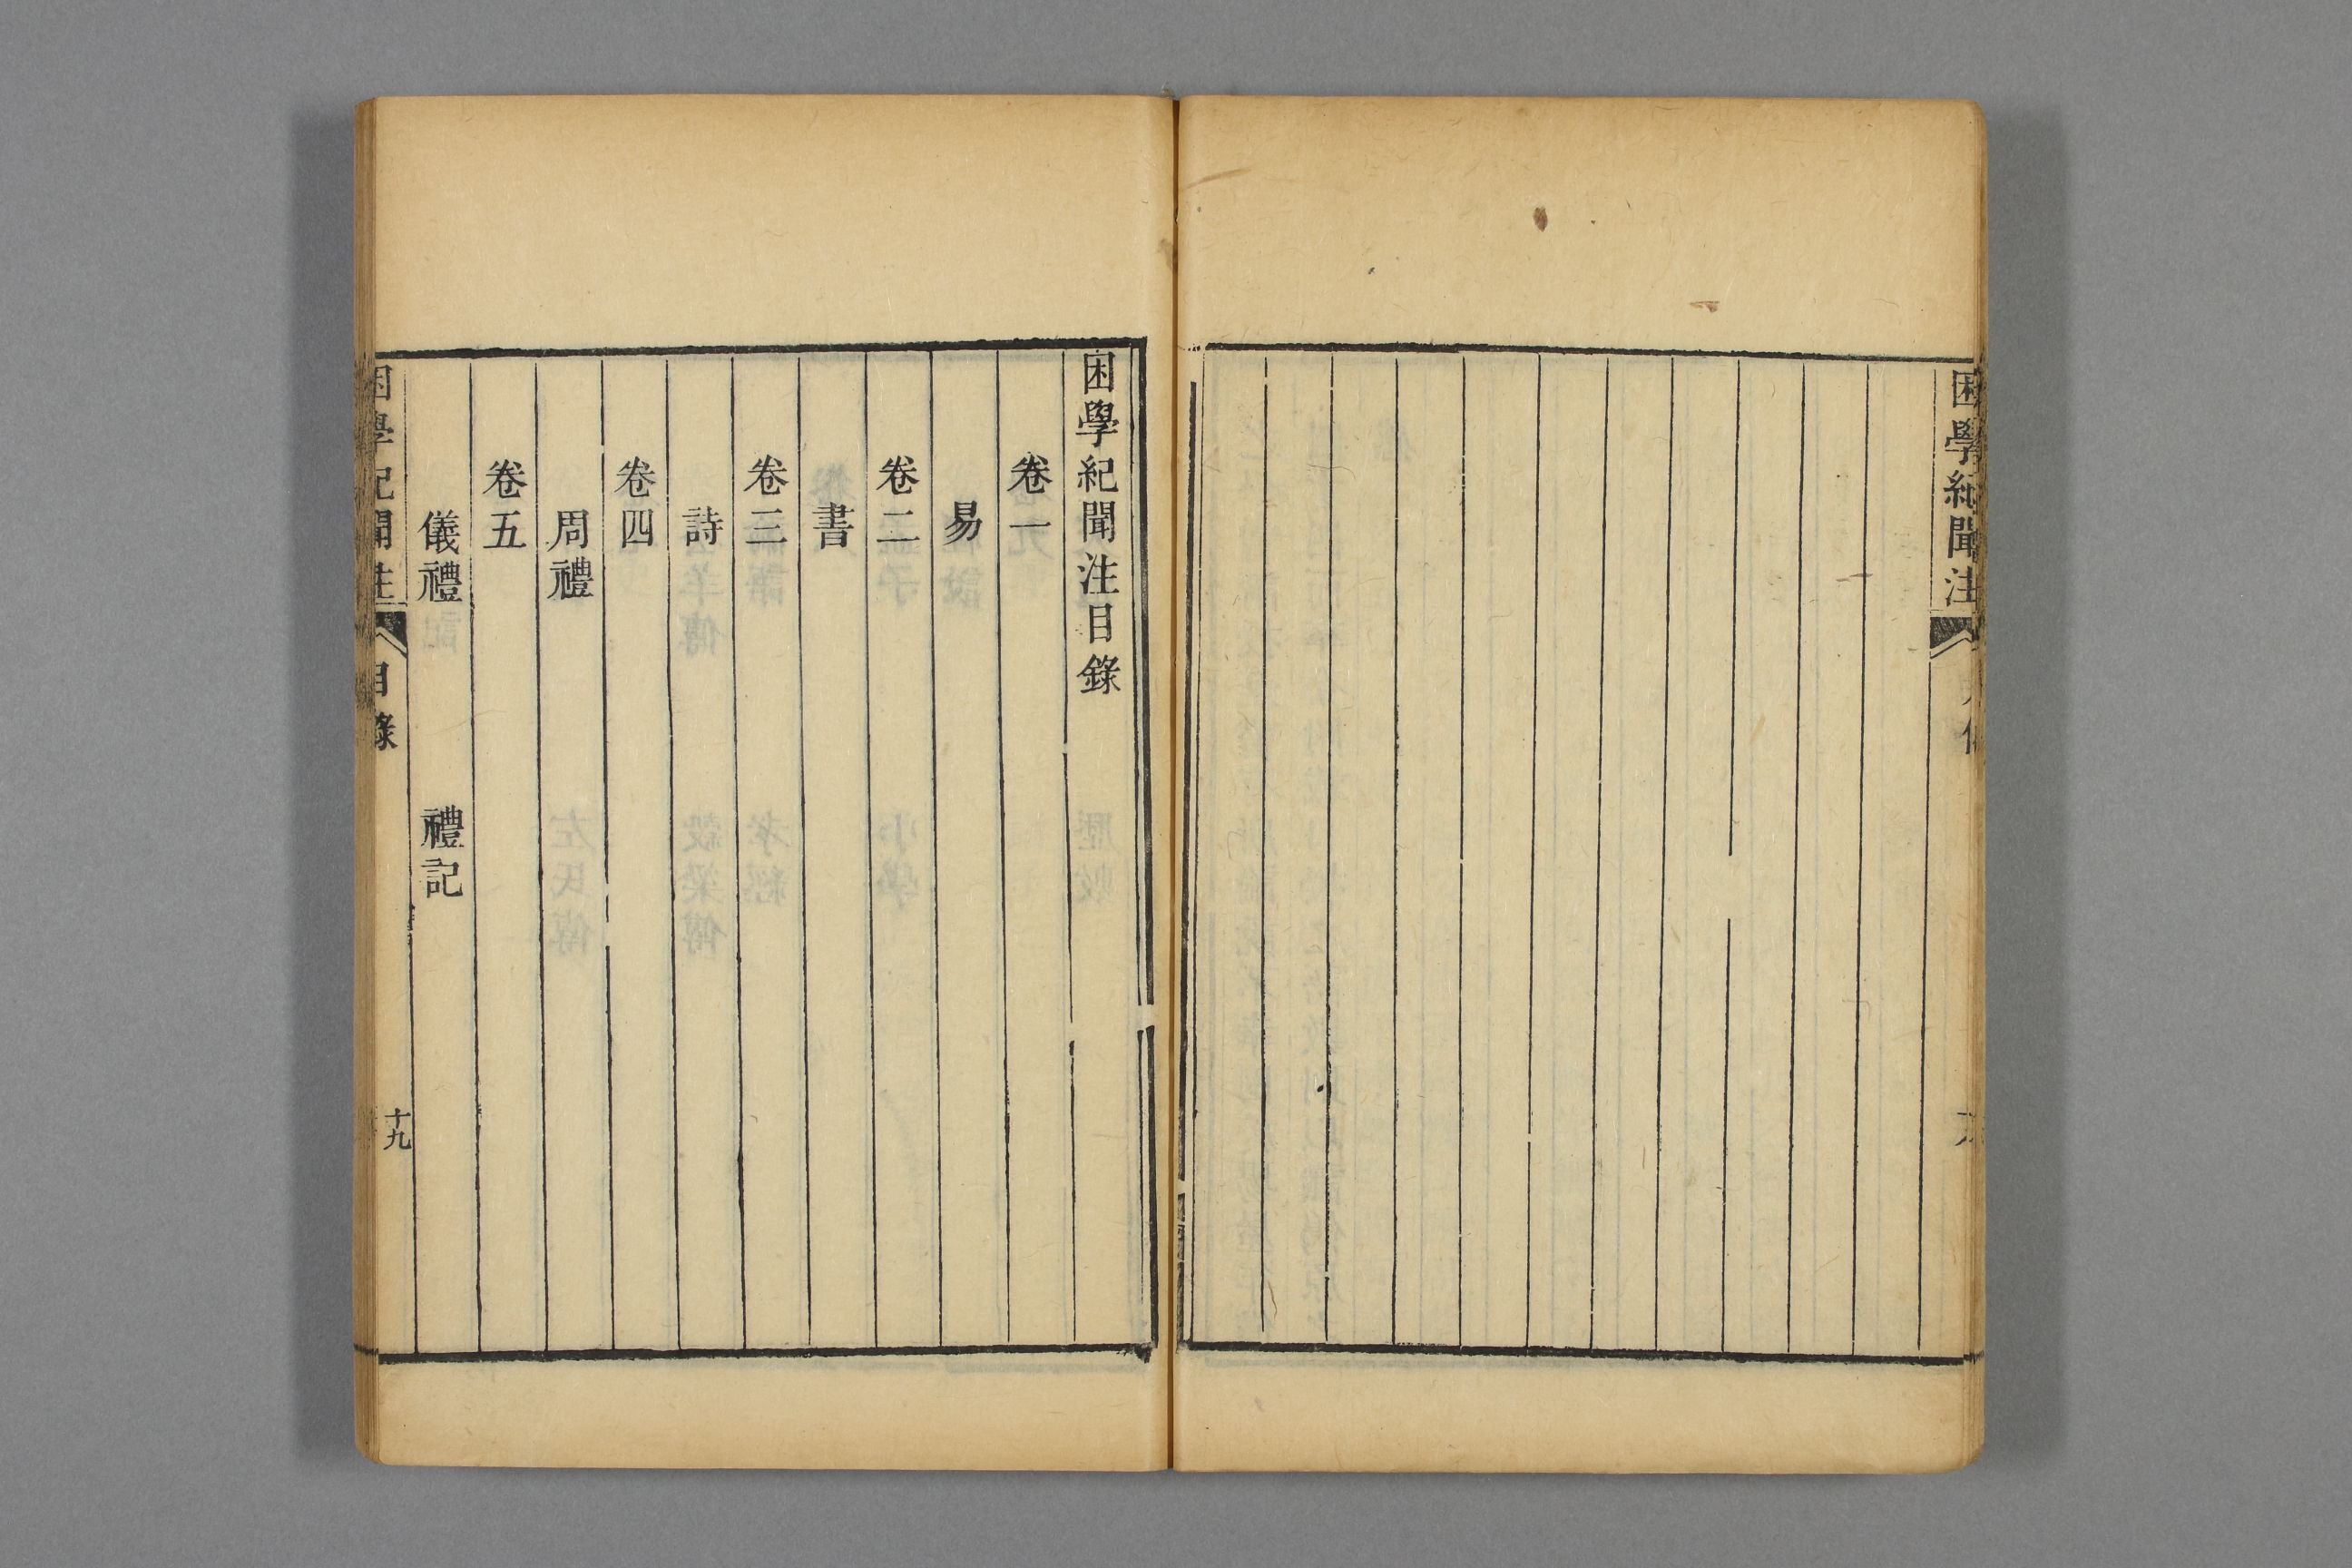 困學紀聞注
困學紀聞注目錄
卷一
易
卷二
書
卷三
詩
卷四
周禮
卷五
儀禮　禮記
困學紀聞注　目錄　十九